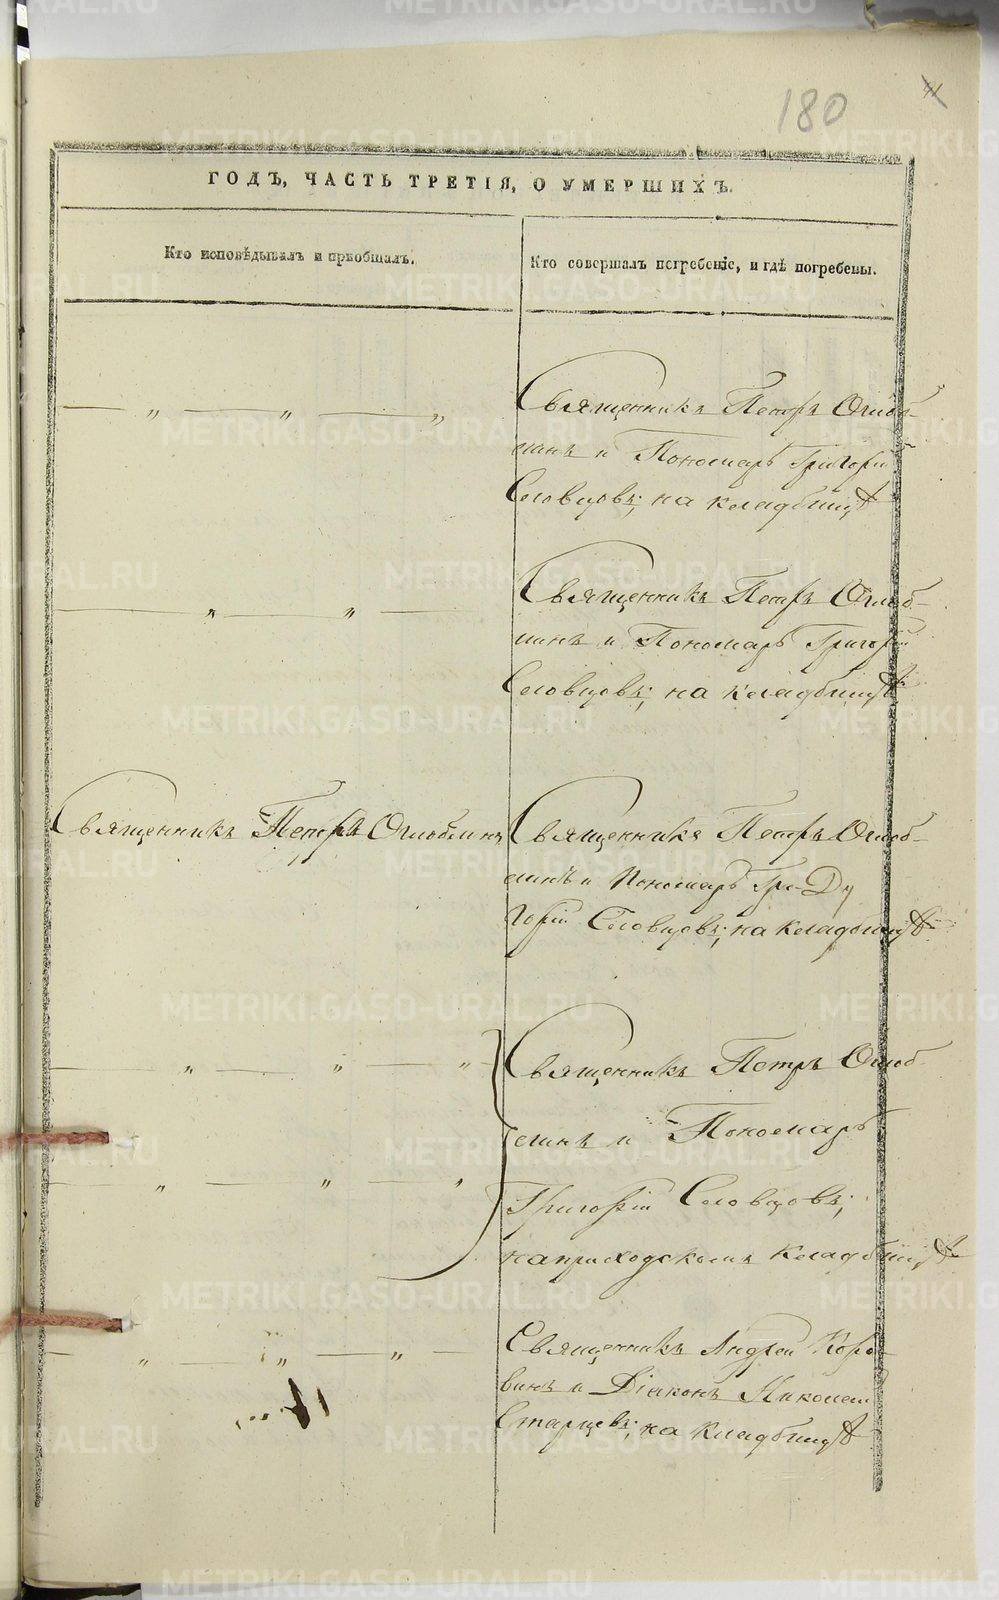 180
41
ГОДЪ, ЧАСТЬ ТРЕТІЯ, О УМЕРШИХЪ.
Кто исповѣдывалъ и пріобщалъ.
Кто совершалъ погребеніе, и гдѣ погребены.
— „ — „ — „
Священникъ Петръ Оглоб-
линъ и Пономарь Григорій
Словцовъ; на кладбищѣ
— „ — „ —
Священникъ Петръ Оглоб-
линъ и Пономарь Григорій
Словцовъ; на кладбищѣ
Священникъ Петръ Оглоблинъ
Священникъ Петръ Оглоб-
линъ и Пономарь Гри-
горій Словцовъ; на кладбищѣ
— „ — „ — „
Священникъ Петръ Оглоб
линъ и Пономарь
— „ — „ — „
Григорій Словцовъ;
на приходскомъ кладбищѣ
— „ — „ — „ —
Священникъ Андрей Коро-
винъ и Діаконъ Николай
Старцевъ; на кладбищѣ
METRIKI.GASO-URAL.RU